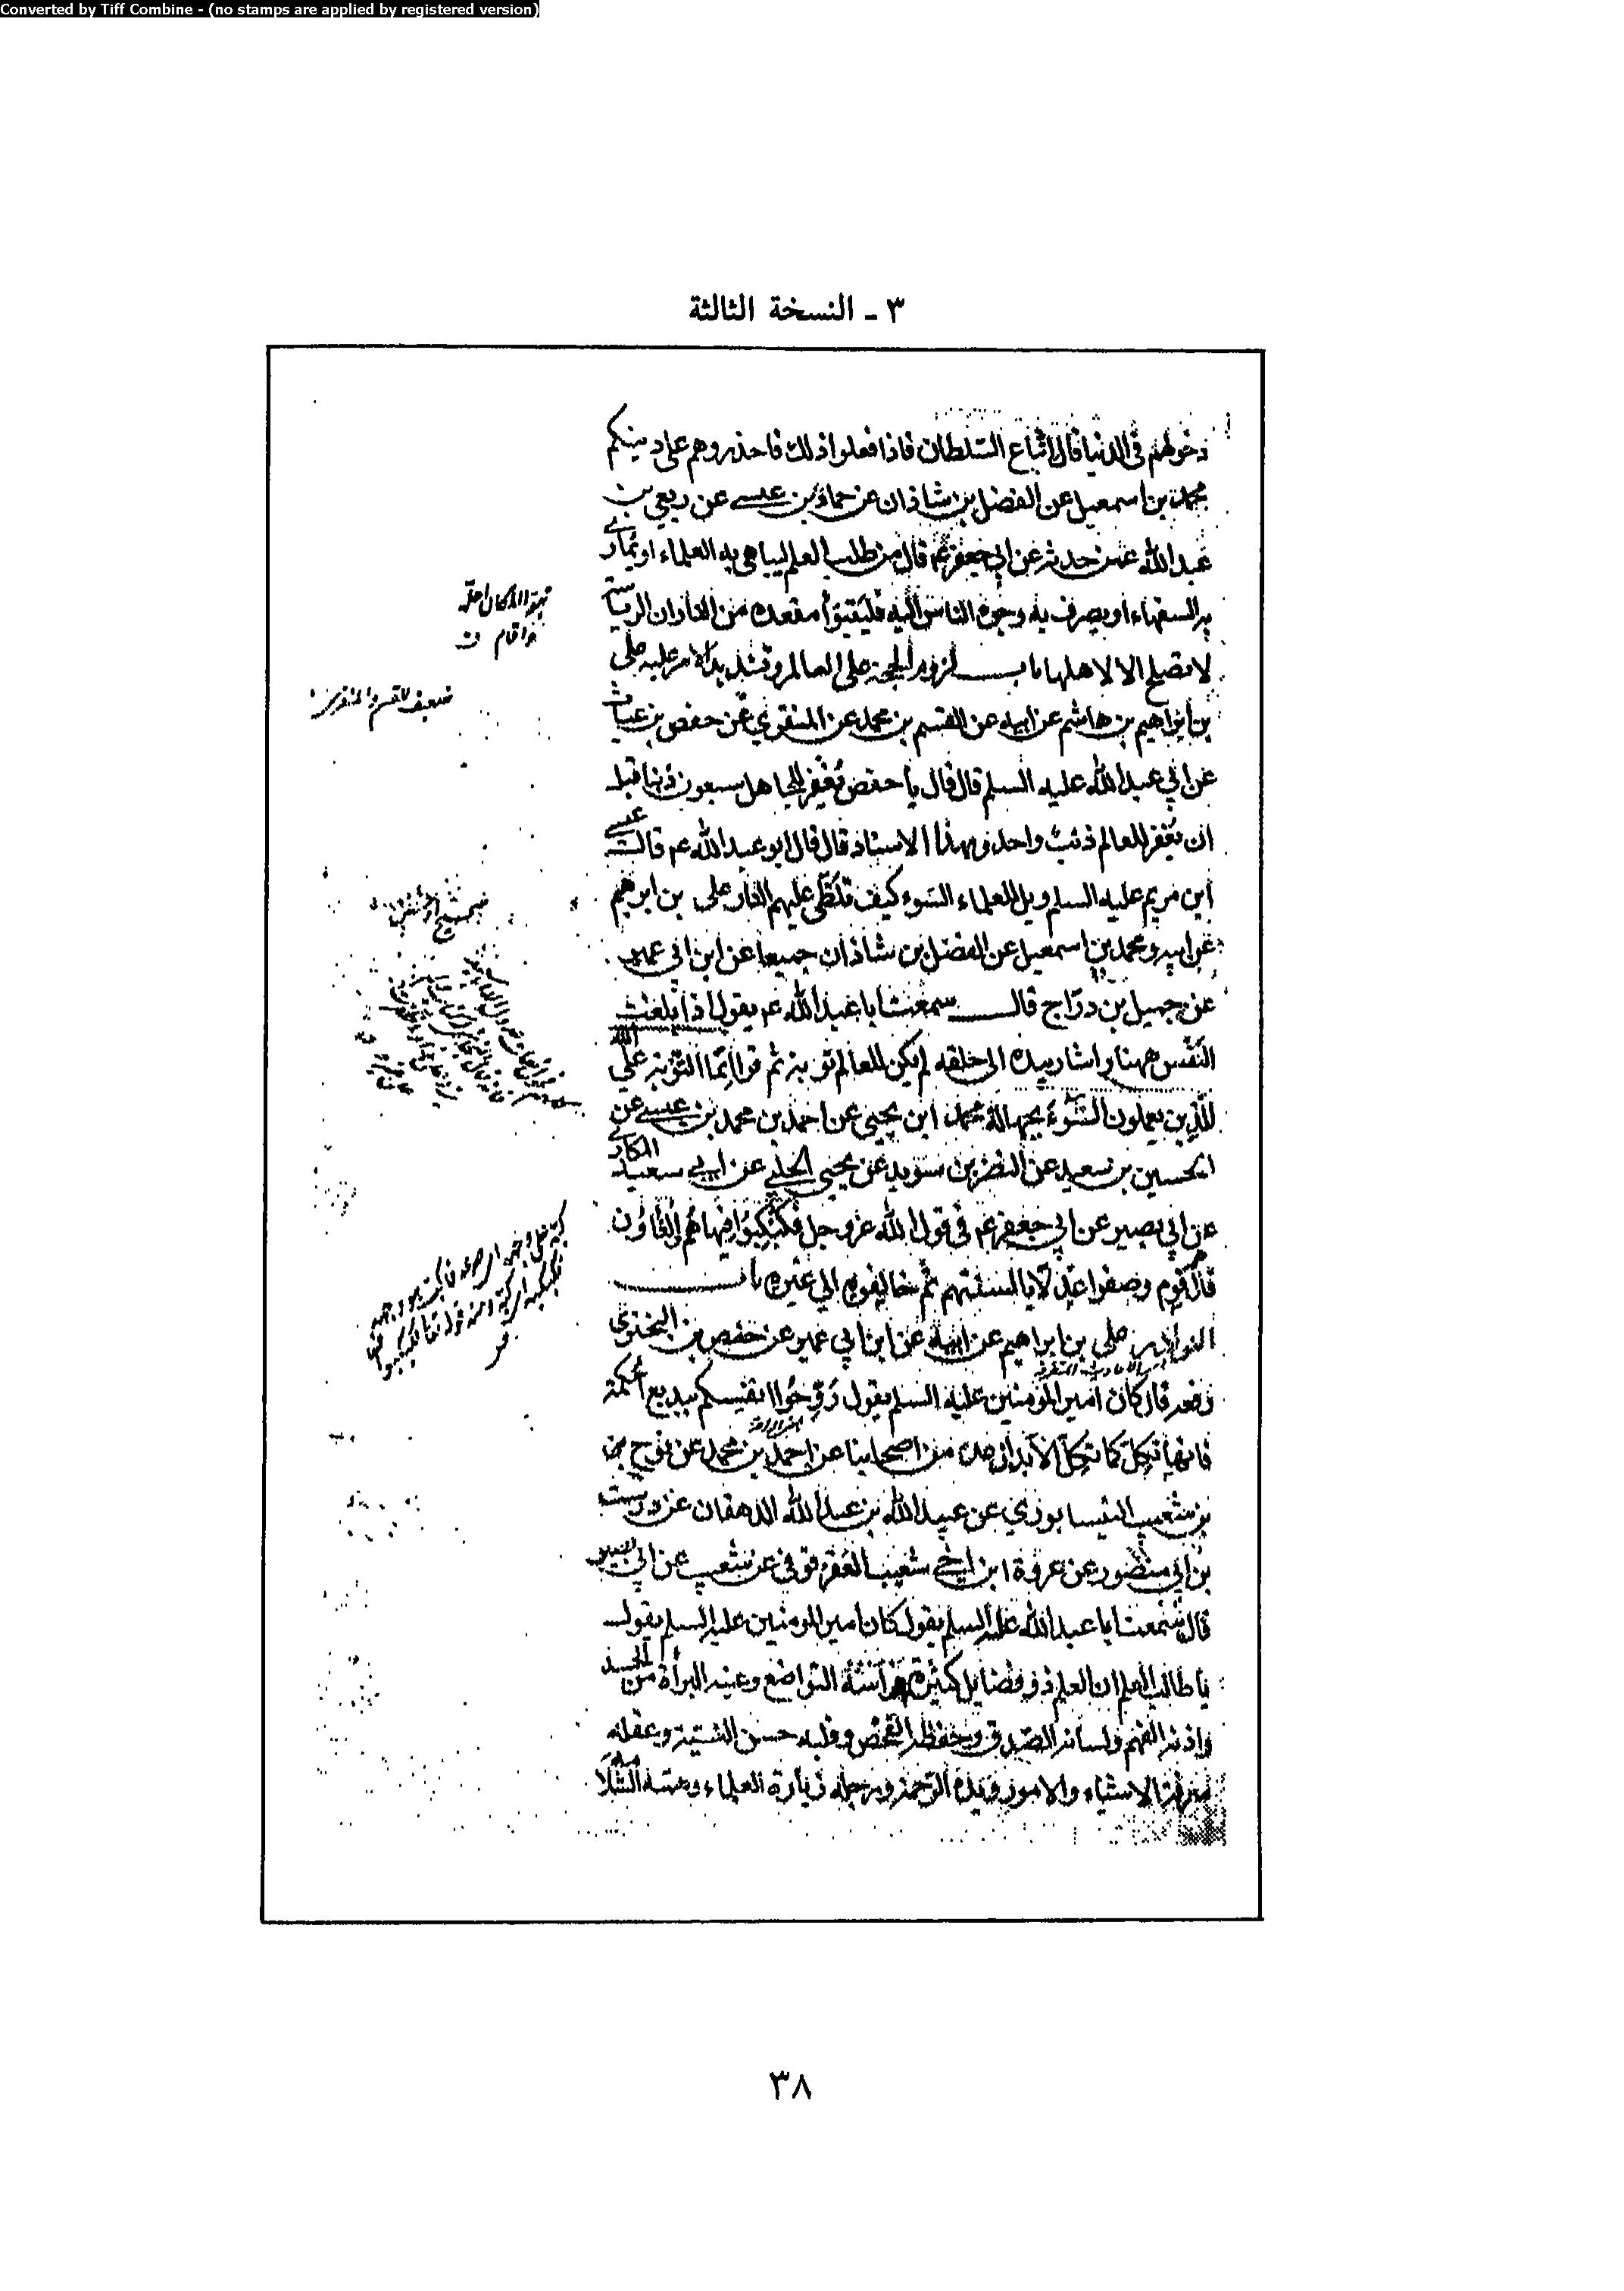 Converted by Tiff Combine - (no stamps are applied by registered version)
٣ - النسخة الثالثة
دخولهم في الدنيا قال اتباع السلطان فاذا فعلوا ذلك فاحذروهم على دينكم
محمد بن اسمعيل عن الفضل بن شاذان عن حماد بن عيسى عن ربعي بن
عبد الله عمن حدثه عن ابي جعفر عم قال من طلب العلم ليباهي به العلماء او يماري
به السفهاء او يصرف به وجوه الناس اليه فليتبوأ مقعده من النار ان الرياسة
لا تصلح الا لاهلها باب لزوم الحجة على العالم وتشديد الامر عليه علي
بن ابراهيم بن هاشم عن ابيه عن القسم بن محمد عن المنقري عن حفص بن غياث
عن ابي عبد الله عليه السلم قال قال يا حفص يُغفر للجاهل سبعون ذنبا قبل
ان يُغفر للعالم ذنب واحد وبهذا الاسناد قال قال ابو عبد الله عم قال عيسى
ابن مريم عليه السلم ويل للعلماء السوء كيف تلظى عليهم النار علي بن ابرهيم
عن ابيه ومحمد بن اسمعيل عن الفضل بن شاذان جميعا عن ابن ابي عمير
عن جميل بن دراج قال سمعت ابا عبد الله عم يقول اذا بلغت
النفس ههنا واشار بيده الى حلقه لم يكن للعالم توبة ثم قرا انما التوبة على الله
للذين يعملون السوء بجهالة محمد ابن يحيى عن احمد بن محمد بن عيسى عن
الحسين بن سعيد عن النضر بن سويد عن يحيى الحلبي عن ابي سعيد المكاري
عن ابي بصير عن ابي جعفر عم في قول الله عز وجل فكبكبوا فيها هم والغاون
قال هم قوم وصفوا عدلا بالسنتهم ثم خالفوه الى غيره باب
النوادر علي بن ابراهيم عن ابيه عن ابن ابي عمير عن حفص بن البختري
رفعه قال كان امير المؤمنين عليه السلم يقول روحوا انفسكم ببديع الحكمة
فانها تكل كما تكل الابدان عدة من اصحابنا عن احمد بن محمد عن نوح
بن شعيب النيسابوري عن عبيد الله بن عبد الله الدهقان عن درست
بن ابي منصور عن عروة ابن اخي شعيب العقرقوفي عن شعيب عن ابي بصير
قال سمعت ابا عبد الله عليه السلم يقول كان امير المؤمنين عليه السلم يقول
يا طالب العلم ان العلم ذو فضايل كثيرة فرأسه التواضع وعينه البرأة من الحسد
واذنه الفهم ولسانه الصدق وحفظه الفحص وقلبه حسن النية وعقله
معرفة الاشياء والامور ويده الرحمة ورجله زيارة العلماء وهمته السلامة
٣٨